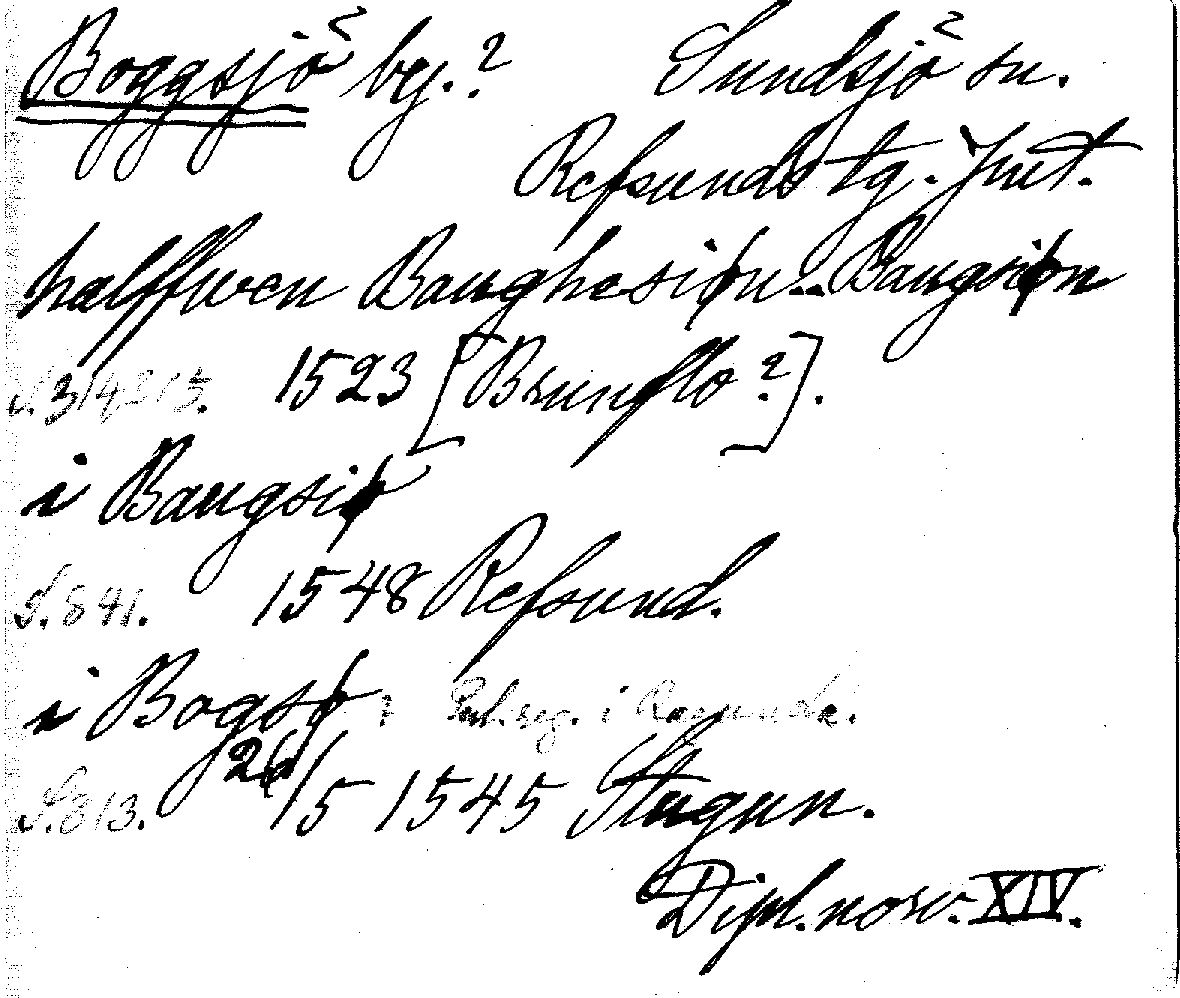 Boggsjö by.? Sundsjö sn.
Refsunds tg. Jmt.
halffwen Baughesiøn.. Baugsiøn
S. 314, 315. 1523 [Brunflo?].
i Baugsiø
S. 841. 1548 Refsund.
i Bogsø
S. 813. 26/5 1545 Stugun.
Dipl. norv. XIV.